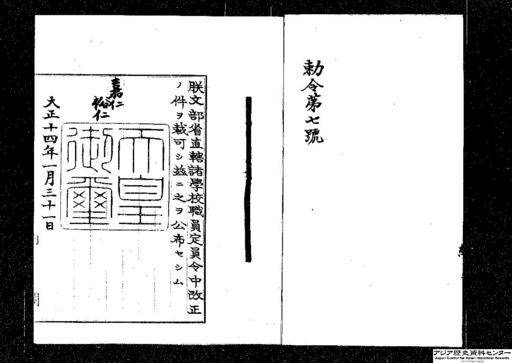 勅令第七號
朕文部省直轄諸學校職員定員令中改正
ノ件ヲ裁可シ茲ニ之ヲ公布セシム
嘉仁
裕仁
天皇
御璽
大正十四年一月三十一日
アジア歴史資料センター
Japan Center for Asian Historical Records